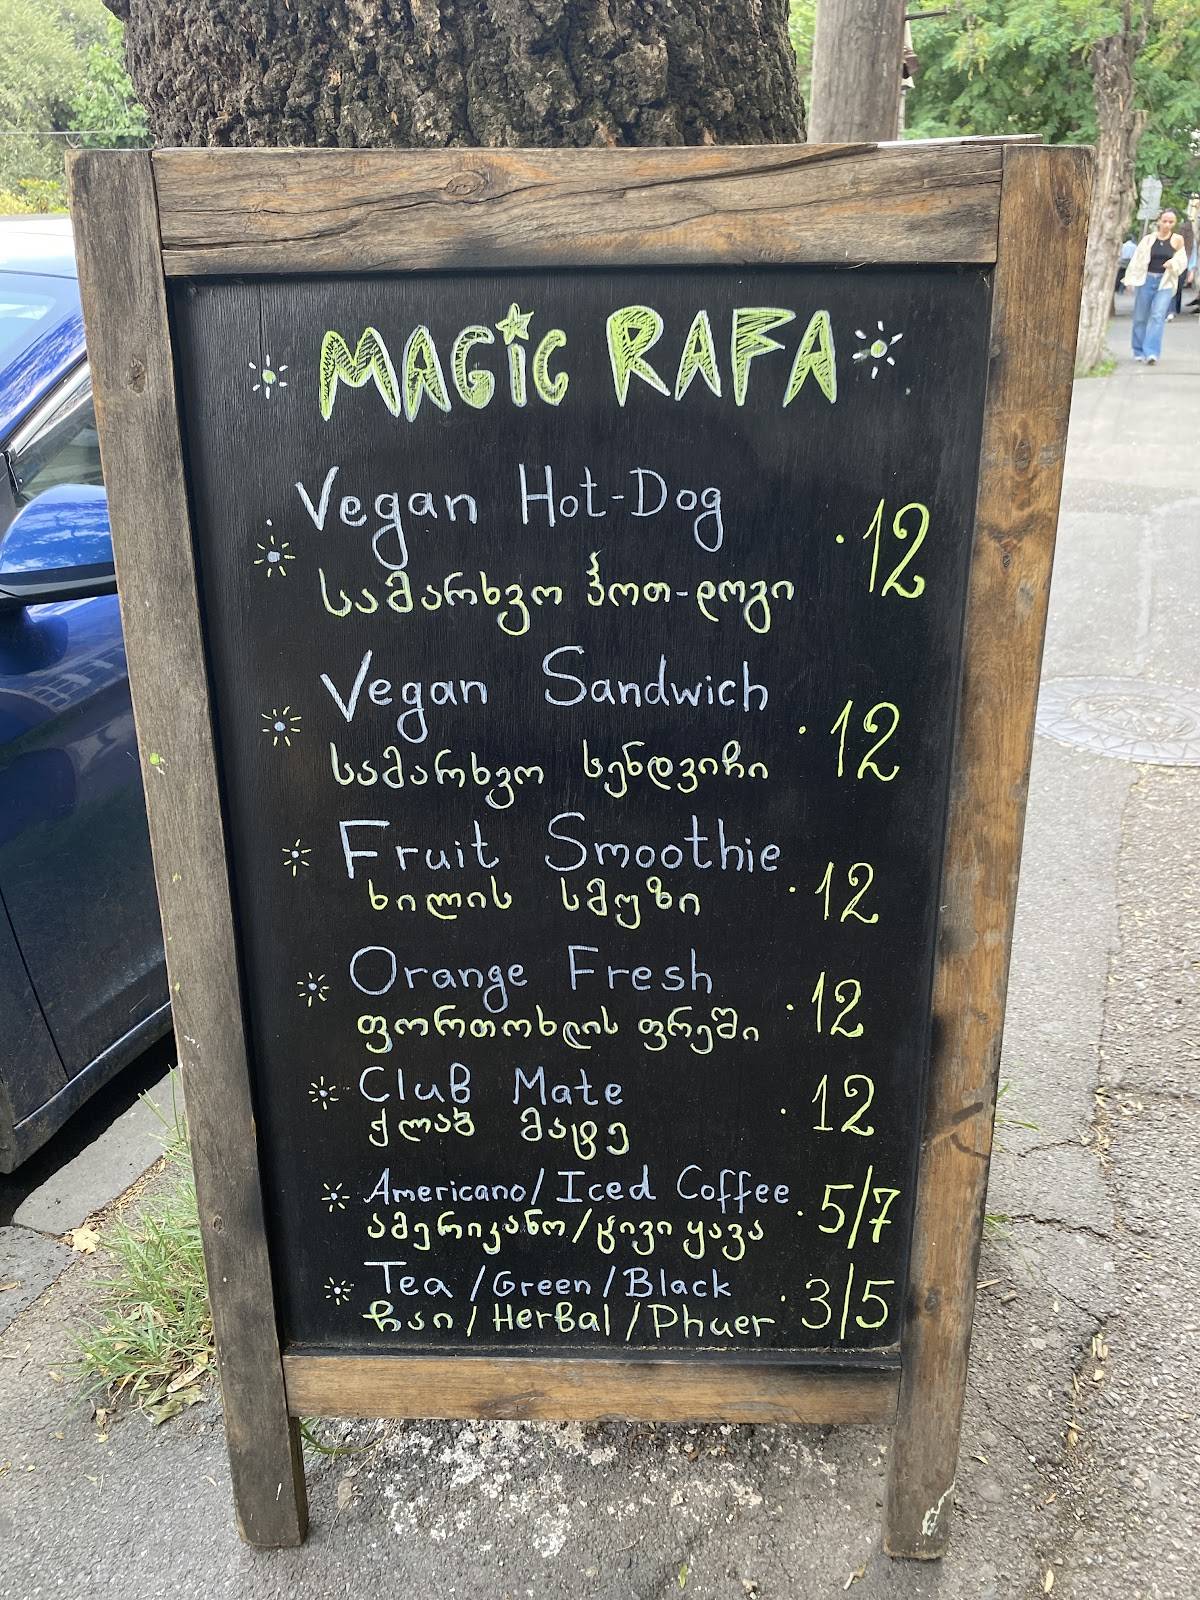 MAGIC RAFA
Vegan Hot-Dog
სამარხვო ჰოთ-დოგი · 12
Vegan Sandwich
სამარხვო სენდვიჩი · 12
Fruit Smoothie
ხილის სმუზი · 12
Orange Fresh
ფორთოხლის ფრეში · 12
Club Mate
ქლაბ მატე · 12
Americano/Iced Coffee · 5/7
ამერიკანო/ცივი ყავა
Tea/Green/Black · 3/5
ჩაი/Herbal/Phuer